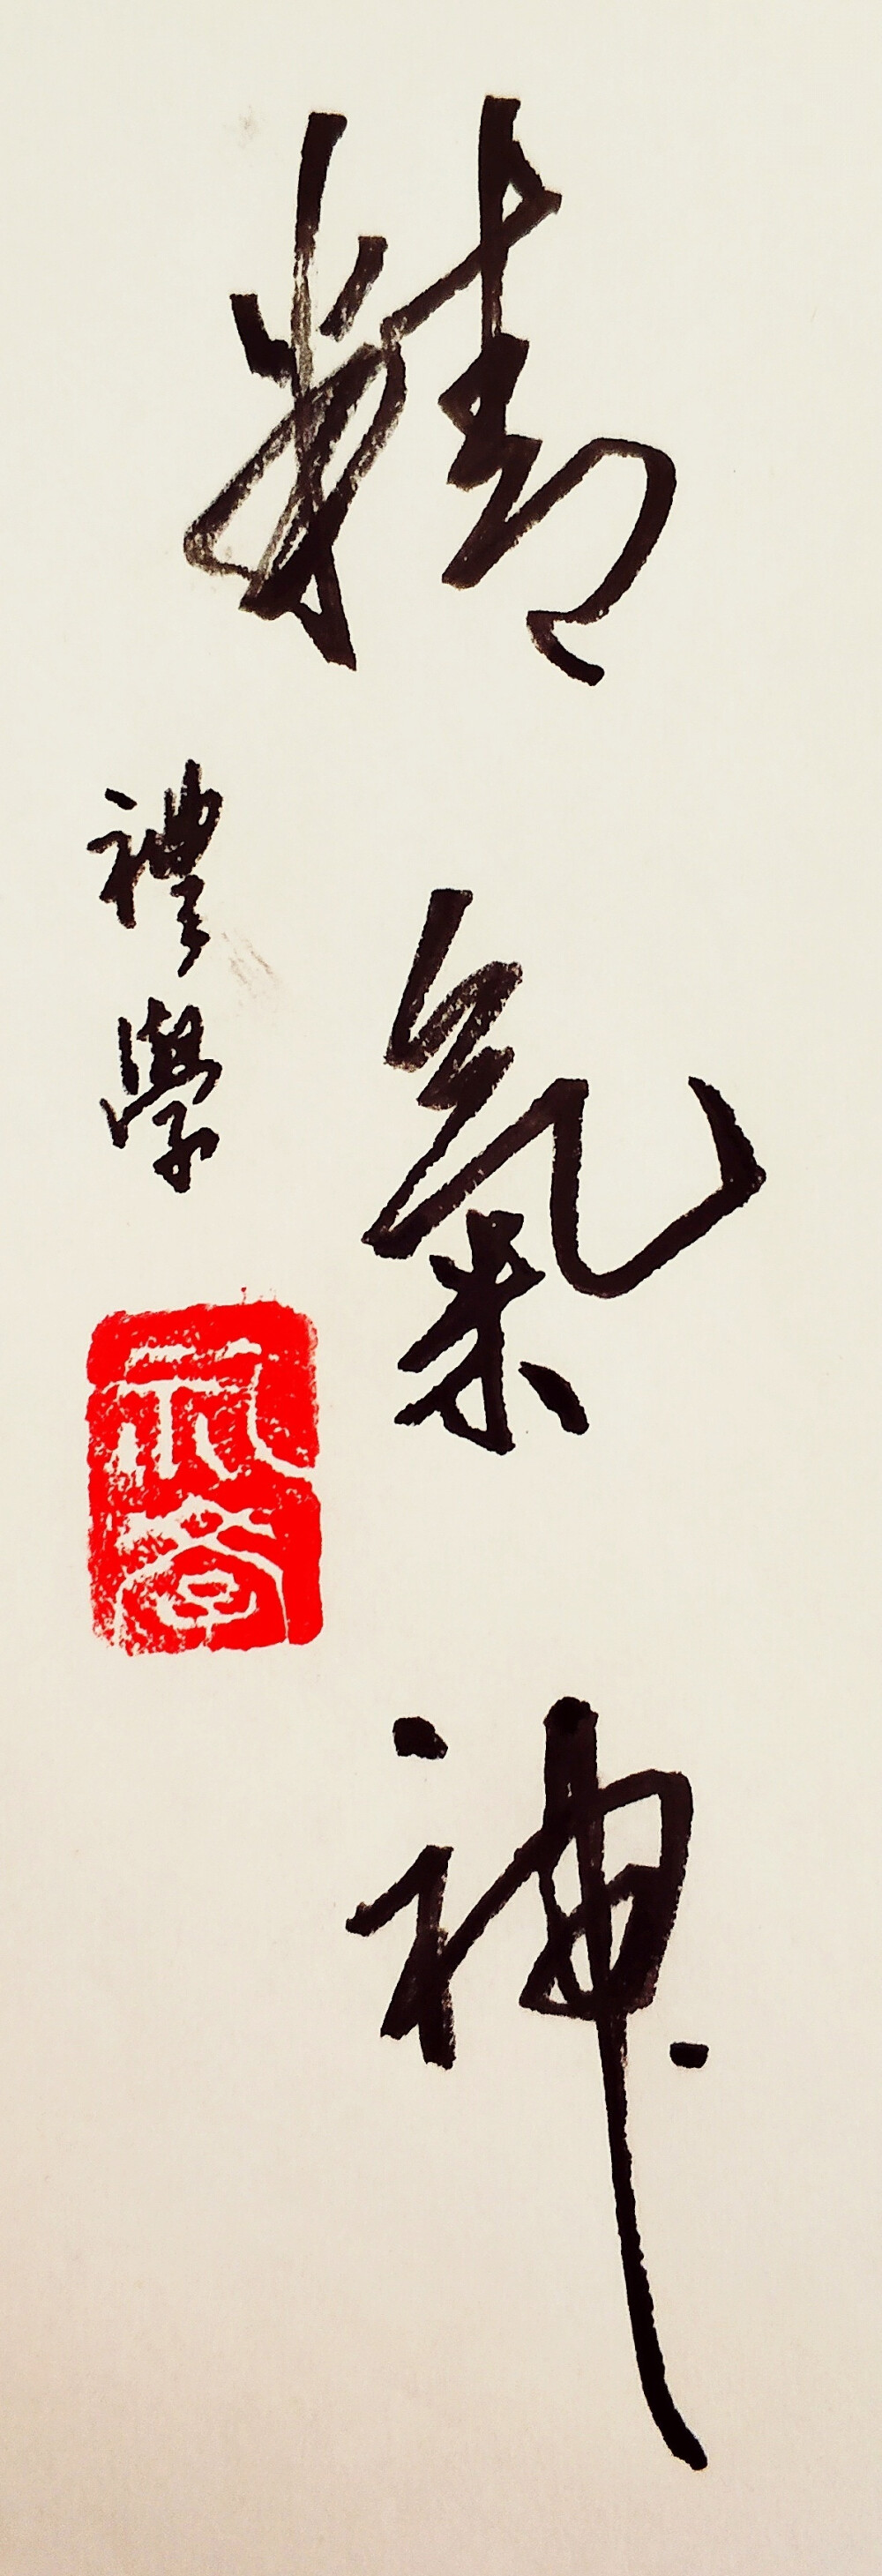 精氣神
禮學